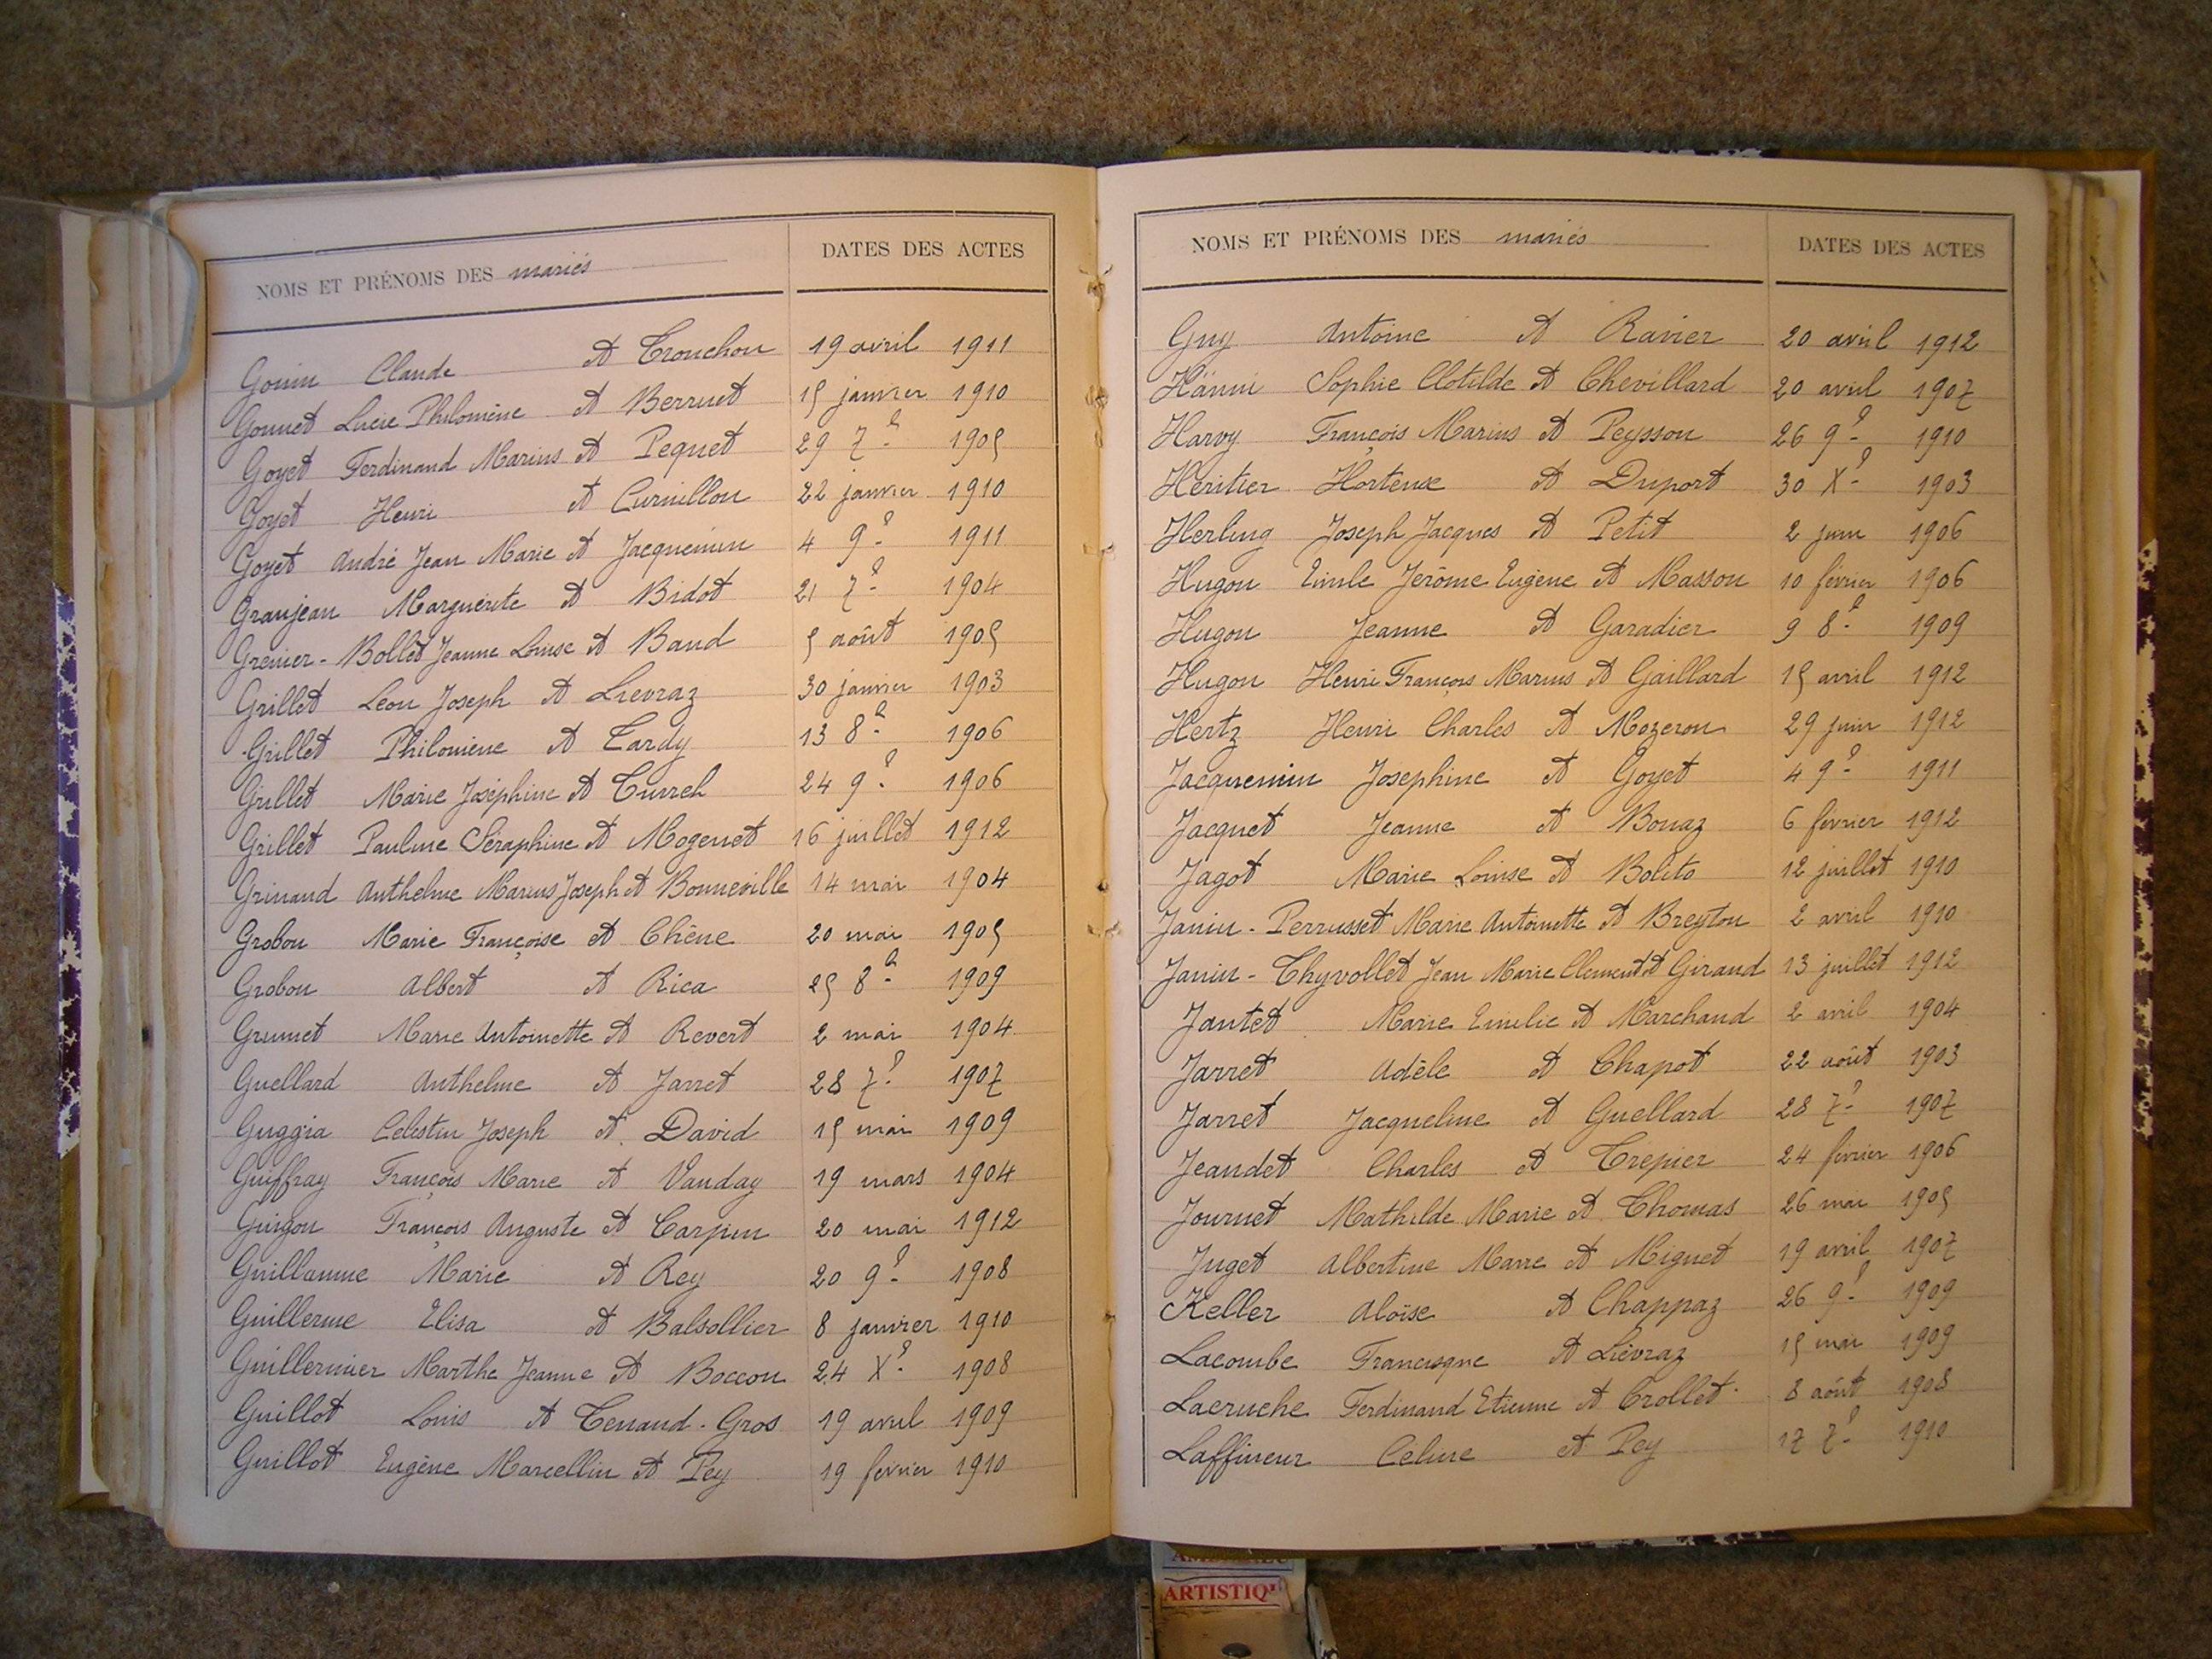 NOMS ET PRÉNOMS DES mariés DATES DES ACTES
Gouin Claude et Trouchon 19 avril 1911
Gonnet Lucie Philomène et Berruet 15 janvier 1910
Goyet Ferdinand Marius et Pequet 29 7e 1905
Goyet Henri et Curvillon 22 janvier 1910
Goyet André Jean Marie et Jacquemin 4 9e 1911
Granjean Marguerite et Bidot 21 7e 1904
Grenier-Bollet Jeanne Louise et Baud 5 août 1905
Grillet Léon Joseph et Lievraz 30 janvier 1903
Grillet Philomène et Tardy 13 8e 1906
Grillet Marie Joséphine et Turrel 24 9e 1906
Grillet Pauline Séraphine et Mogenet 16 juillet 1912
Grinand Anthelme Marius Joseph et Bonneville 14 mai 1904
Grobon Marie Françoise et Chêne 20 mai 1905
Grobon Albert et Rica 25 8e 1909
Grumet Marie Antoinette et Revert 2 mai 1904
Guellard Anthelme et Jarret 28 7e 1907
Guggia Célestin Joseph et David 15 mai 1909
Guiffray François Marie et Vauday 19 mars 1904
Guigon François Auguste et Carpin 20 mai 1912
Guillaume Marie et Rey 20 9e 1908
Guillerme Elisa et Balsollier 8 janvier 1910
Guillermier Marthe Jeanne et Boccon 24 Xe 1908
Guillot Louis et Tenand-Gros 19 avril 1909
Guillot Eugène Marcellin et Pey 19 février 1910
NOMS ET PRÉNOMS DES mariés DATES DES ACTES
Guy Antoine et Ravier 20 avril 1912
Hänni Sophie Clotilde et Chevillard 20 avril 1907
Harvy François Marius et Peysson 26 9e 1910
Héritier Hortense et Duport 30 Xe 1903
Herling Joseph Jacques et Petit 2 juin 1906
Hugon Emile Jérôme Eugène et Masson 10 février 1906
Hugon Jeanne et Garadier 9 8e 1909
Hugon Henri François Marius et Gaillard 15 avril 1912
Hertz Henri Charles et Mozeron 29 juin 1912
Jacquemin Joséphine et Goyet 4 9e 1911
Jacquet Jeanne et Bonaz 6 février 1912
Jagot Marie Louise et Bolito 12 juillet 1910
Janin-Perrusset Marie Antoinette et Breyton 2 avril 1910
Janin-Thyvollet Jean Marie Clement et Giraud 13 juillet 1912
Jantet Marie Emilie et Marchand 2 avril 1904
Jarret Adèle et Chapot 22 août 1903
Jarret Jacqueline et Guellard 28 7e 1907
Jeandet Charles et Trepier 24 février 1906
Journet Mathilde Marie et Thomas 26 mai 1905
Juget Albertine Marie et Miguet 19 avril 1907
Keller Aloïse et Chappaz 26 9e 1909
Lacombe Francisque et Liévraz 15 mai 1909
Lacruche Ferdinand Etienne et Crollet 8 août 1908
Laffineur Celine et Pey 17 7e 1910